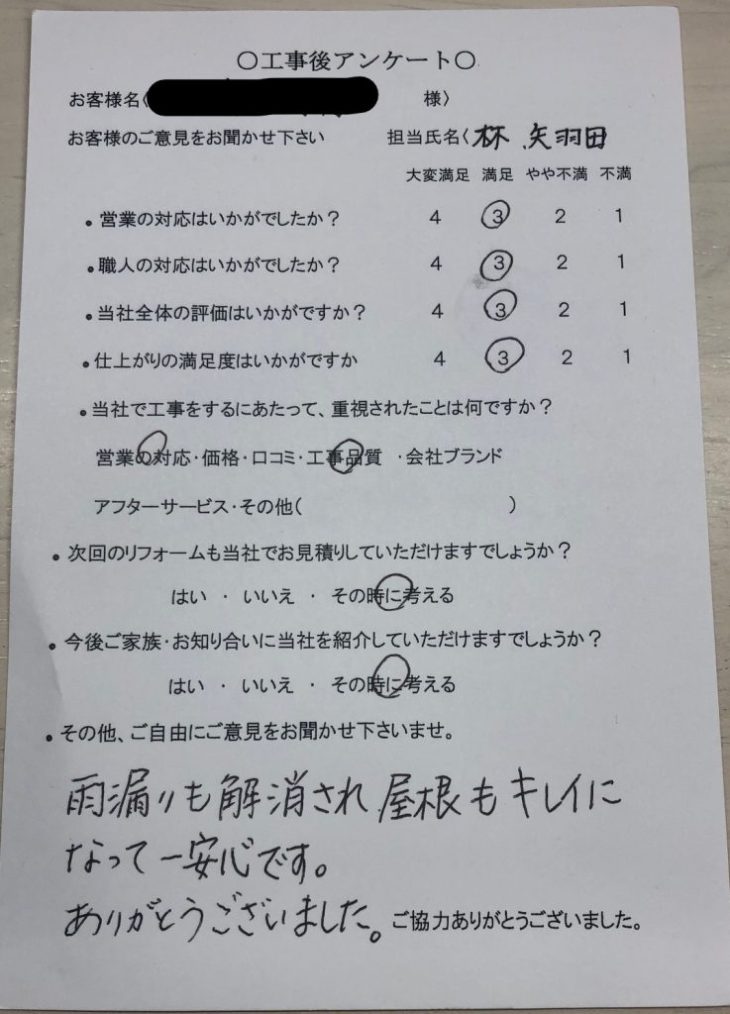 〇工事後アンケート〇
お客様名〈 様〉
お客様のご意見をお聞かせ下さい 担当氏名〈 林 矢羽田
大変満足 満足 やや不満 不満
・営業の対応はいかがでしたか? 4 3 2 1
・職人の対応はいかがでしたか? 4 3 2 1
・当社全体の評価はいかがですか? 4 3 2 1
・仕上がりの満足度はいかがですか 4 3 2 1
・当社で工事をするにあたって、重視されたことは何ですか?
営業の対応・価格・口コミ・工事品質 ・会社ブランド
アフターサービス・その他( )
・次回のリフォームも当社でお見積りしていただけますでしょうか?
はい ・ いいえ ・ その時に考える
・今後ご家族・お知り合いに当社を紹介していただけますでしょうか?
はい ・ いいえ ・ その時に考える
・その他、ご自由にご意見をお聞かせ下さいませ。
雨漏りも解消され屋根もキレイに
なって一安心です。
ありがとうございました。ご協力ありがとうございました。